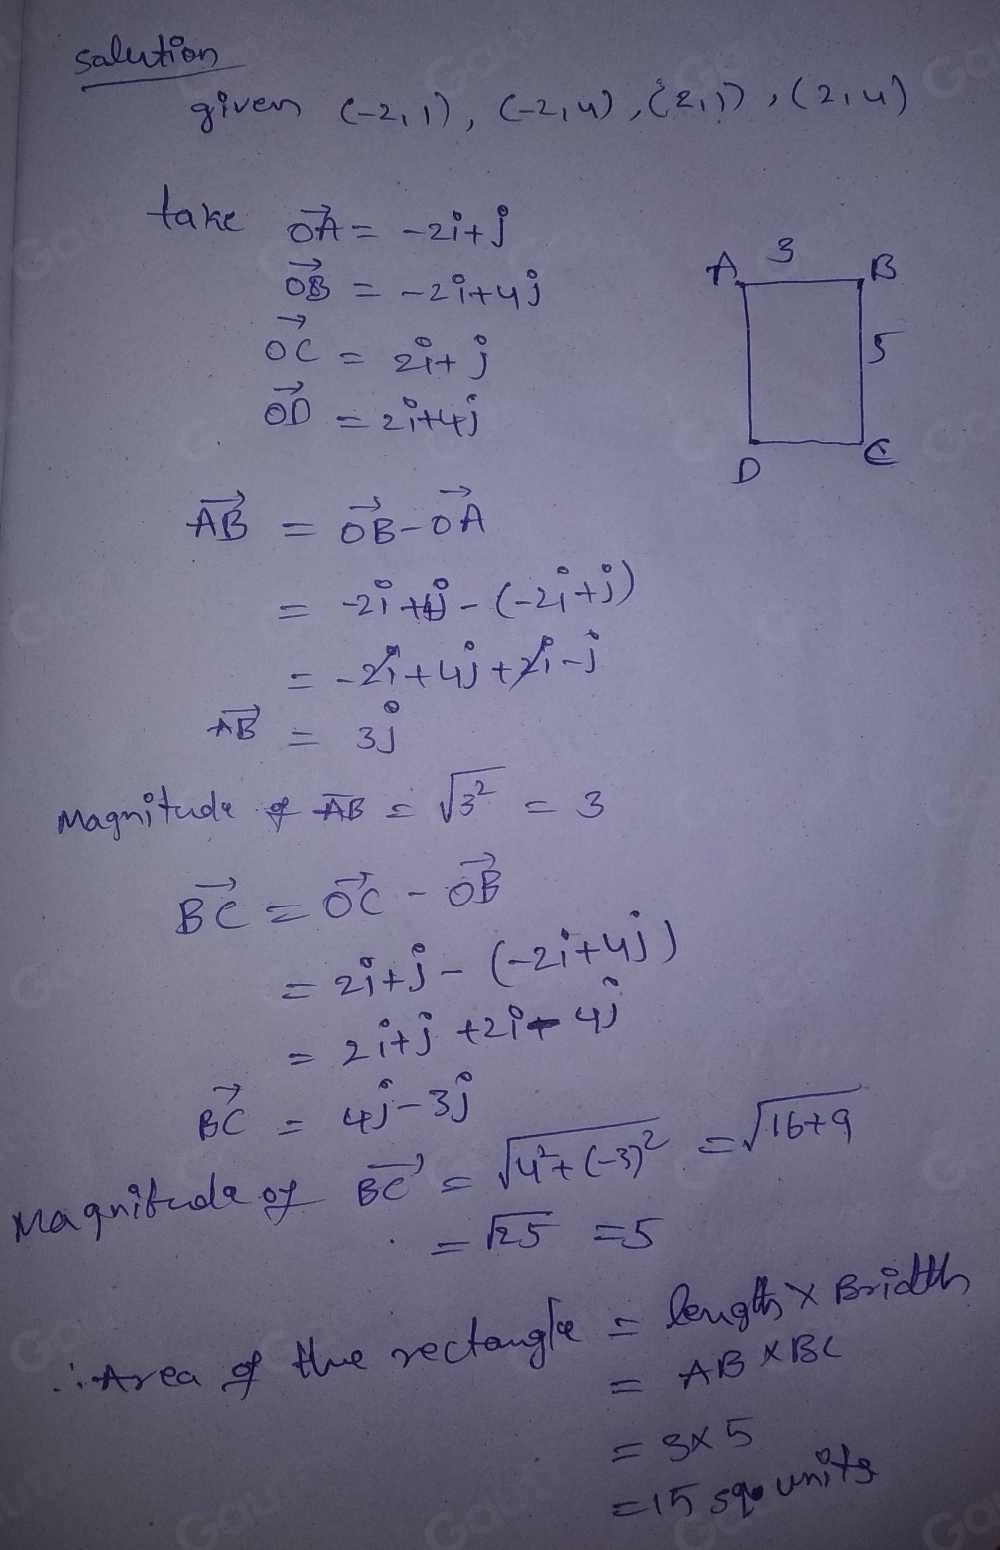 salution
given (-2,1), (-2,4), (2,1), (2,4)
take OA = -2i+j
OB = -2i+4j
OC = 2i+j
OD = 2i+4j
A 3 B
5
D C
AB = OB - OA
= -2i+4j - (-2i+j)
= -2i+4j+2i-j
AB = 3j
Magnitude of AB = √3² = 3
BC = OC - OB
= 2i+j - (-2i+4j)
= 2i+j +2i-4j
BC = 4j-3j
Magnitude of BC = √4²+(-3)² = √16+9
= √25 = 5
∴ Area of the rectangle = length × Bridth
= AB × BC
= 3×5
= 15 sq. units